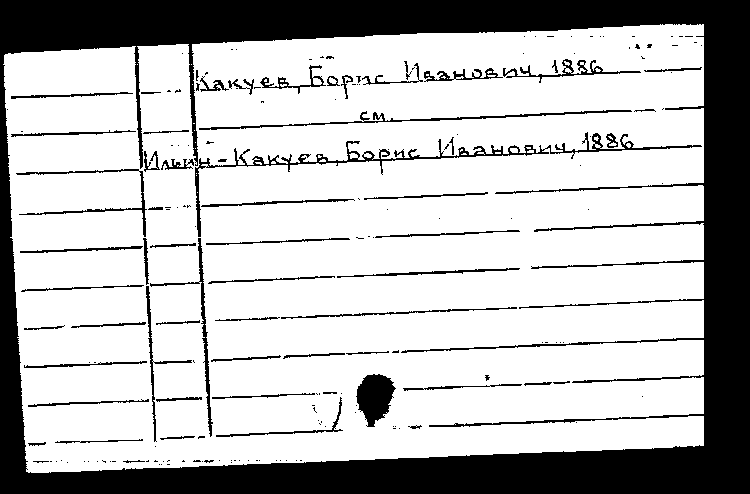 Какуев, Борис Иванович, 1886
см.
Ильин-Какуев, Борис Иванович, 1886